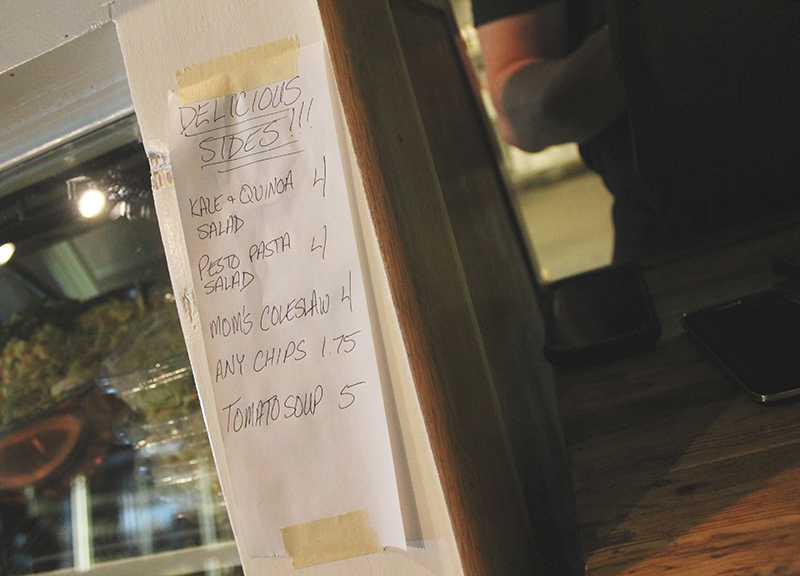 DELICIOUS
SIDES!!!
KALE + QUINOA 4
SALAD
PESTO PASTA 4
SALAD
MOM'S COLESLAW 4
ANY CHIPS 1.75
TOMATO SOUP 5